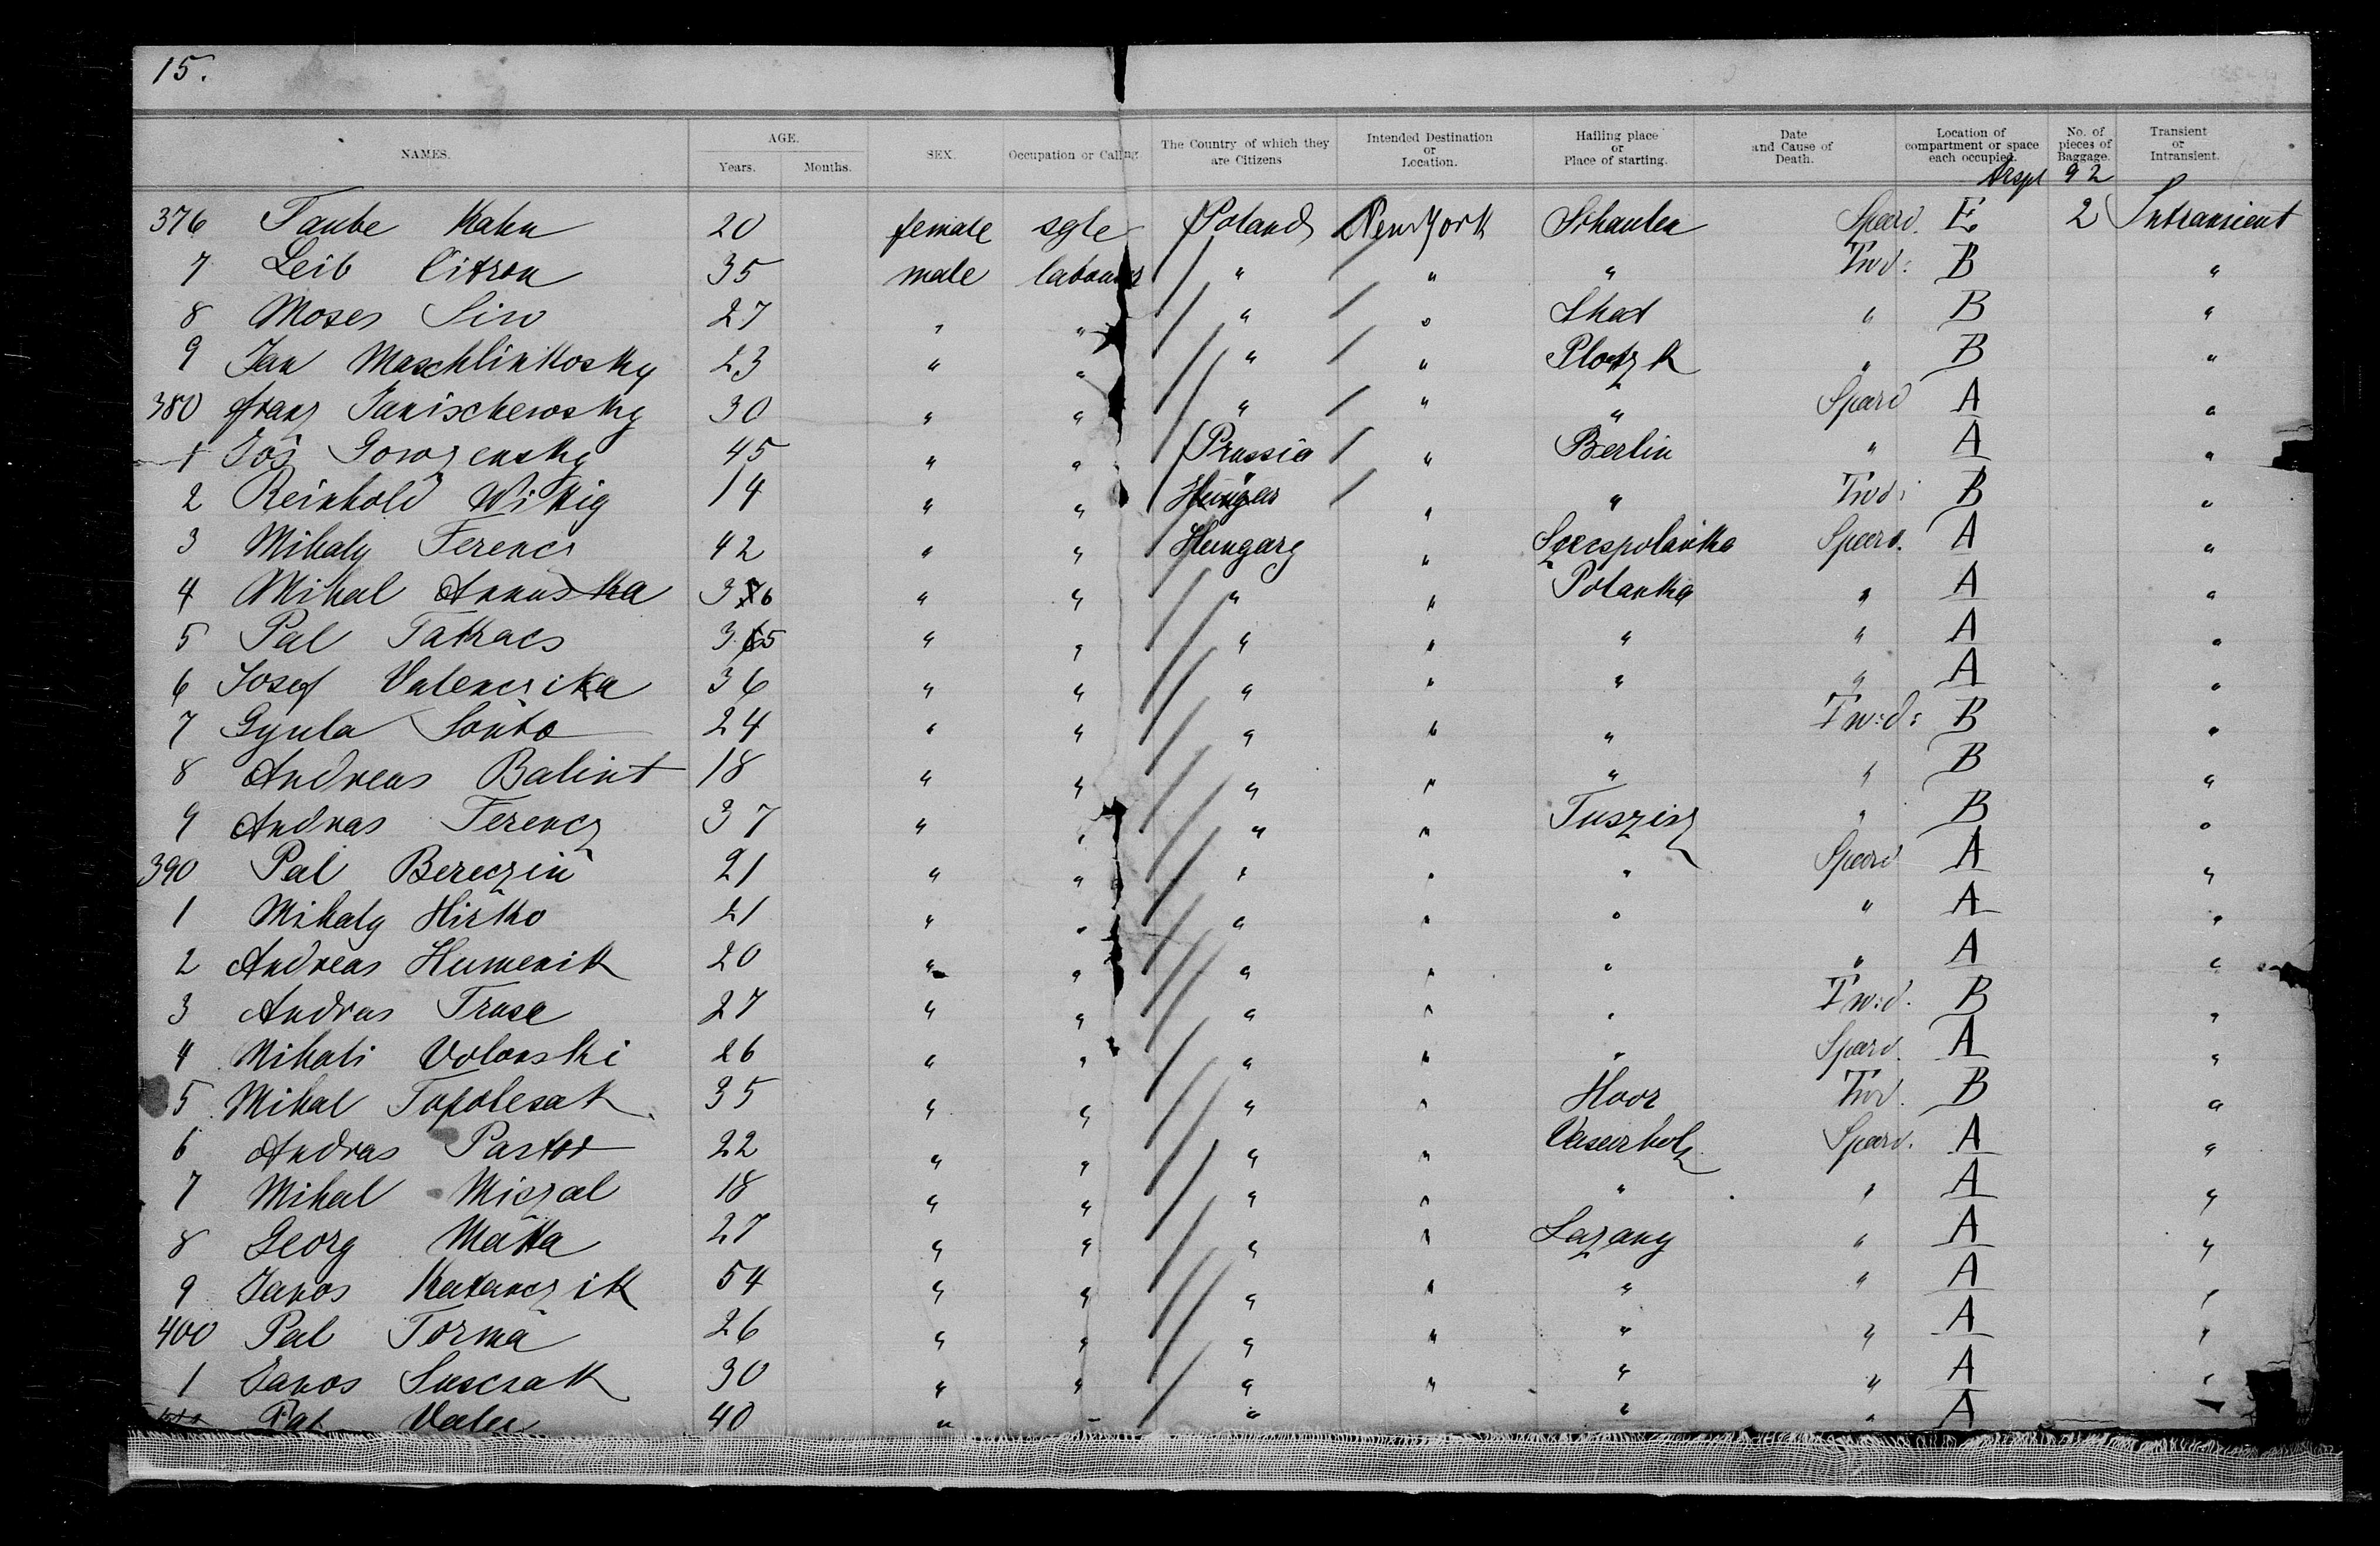 15.
NAMES. AGE. Years. Months. SEX. Occupation or Calling The Country of which they are Citizens Intended Destination or Location. Hailing place or Place of starting. Date and Cause of Death. Location of compartment or space each occupied. No. of pieces of Baggage. Transient or Intransient.
92
376 Taube Kahn 20 female sgle Poland New York Schaulen Spard. E 2 Intransient
7 Leib Citron 35 male labourer " " " Twd: B "
8 Moses Siro 27 " " " " Shat " B "
9 Jan Maschlinkosky 23 " " " " Plotzk " B "
380 franz Janischewosky 30 " " " " " Spard A "
1 Jos Gowozensky 45 " " Prussia " Berlin " A "
2 Reinhold Wittig 14 " " " " " Twd: B "
3 Mihaly Ferencz 42 " " Hungary " Szecspolanka Spard. A "
4 Mihal Annuska 36 " " " " Polanka " A "
5 Pal Takacs 35 " " " " " " A "
6 Josef Valencsika 36 " " " " " " A "
7 Gyula Sonto 24 " " " " " Tw:d: B "
8 Andreas Balint 18 " " " " " " B "
9 Andras Ferencz 37 " " " " Tuszisz " B "
390 Pal Bereczin 21 " " " " " Spard A "
1 Mihaly Hirko 21 " " " " " " A "
2 Andreas Humenik 20 " " " " " " A "
3 Andras Trusa 27 " " " " " Tw:d. B "
4 Mihali Volonski 26 " " " " " Spard. A "
5 Mihal Topolesak 35 " " " " Hoor Twd. B "
6 Andras Pastor 22 " " " " Vasarholz Spard. A "
7 Mihal Miczal 18 " " " " " " A "
8 Georg Matta 27 " " " " Lazany " A "
9 Janos Katanczik 54 " " " " " " A "
400 Pal Torma 26 " " " " " " A "
1 Janos Suscsak 30 " " " " " " A "
Pal 40 " " " " " A